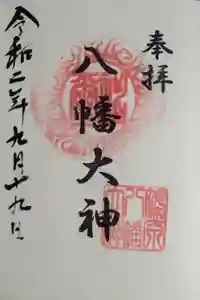 奉拝
八幡大神
令和二年九月十九日